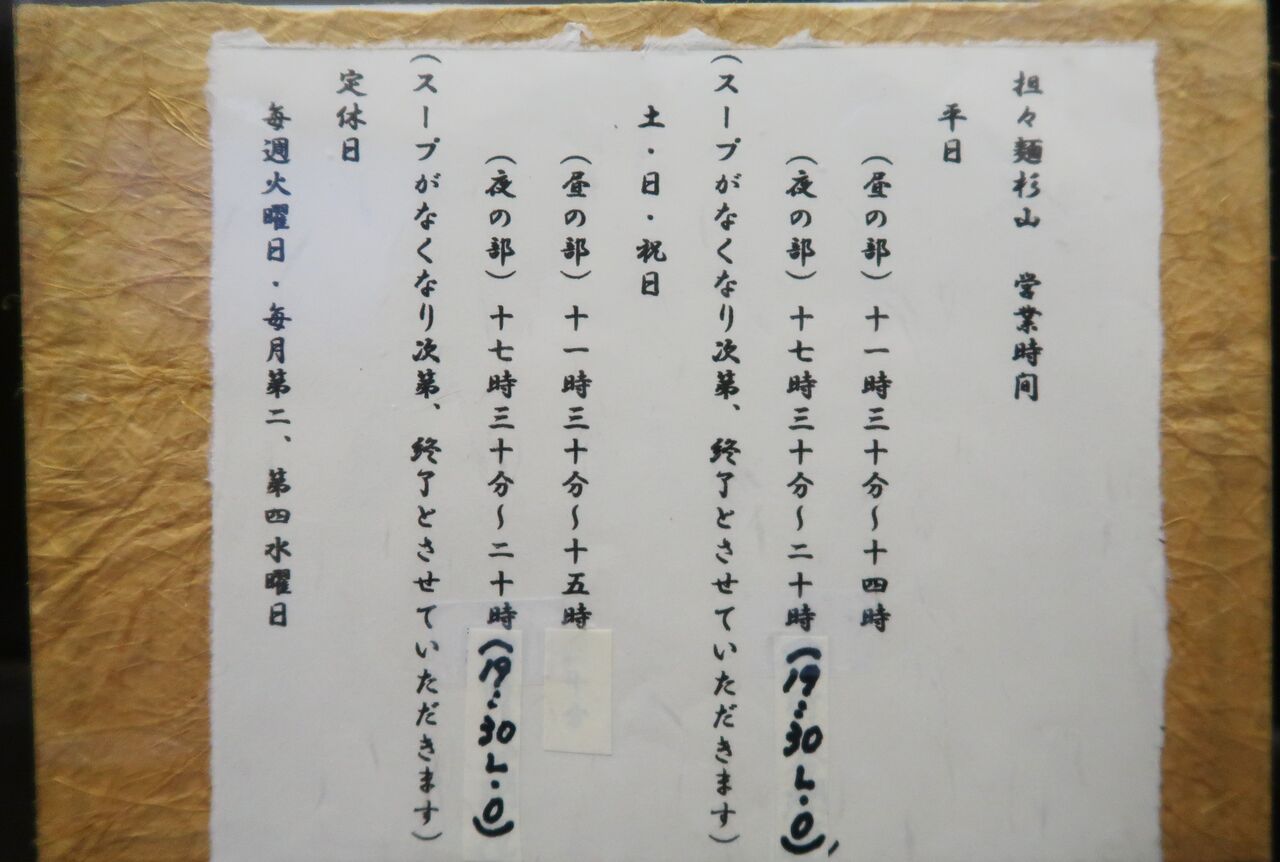 担々麺杉山　営業時间
平日
（昼の部）十一時三十分～十四時
（夜の部）十七時三十分～二十時（19:30 L.O）
（スープがなくなり次第、終了とさせていただきます）
土・日・祝日
（昼の部）十一時三十分～十五時
（夜の部）十七時三十分～二十時（19:30 L.O）
（スープがなくなり次第、終了とさせていただきます）
定休日
毎週火曜日・毎月第二、第四水曜日